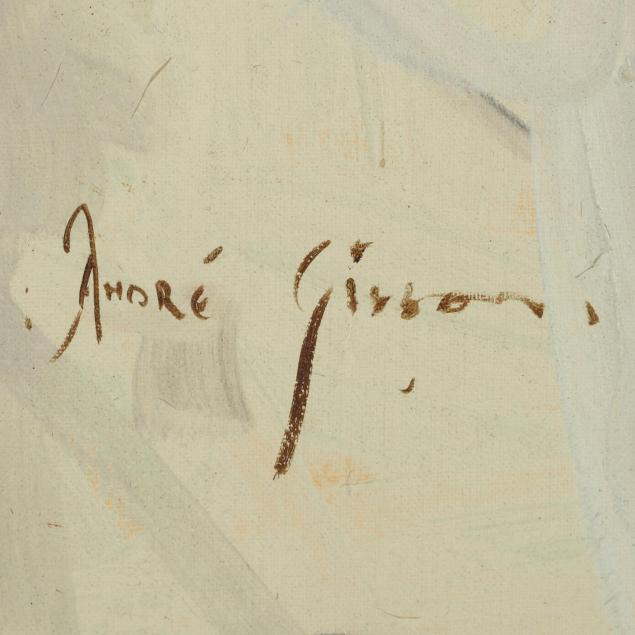 André Gisson.